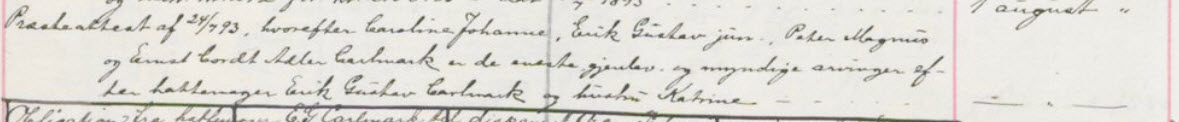 1893
1 august "
Præsteattest af 24/7 93, hvorefter Caroline Johanne, Erik Gustav jun., Peter Magnus
og Ernst Cordt Adler Carlmark er de eneste gjenlev. og myndige arvinger ef-
ter hattemager Erik Gustav Carlmark og hustru Katrine — — "
Obligation fra hattemager E G Carlmark til